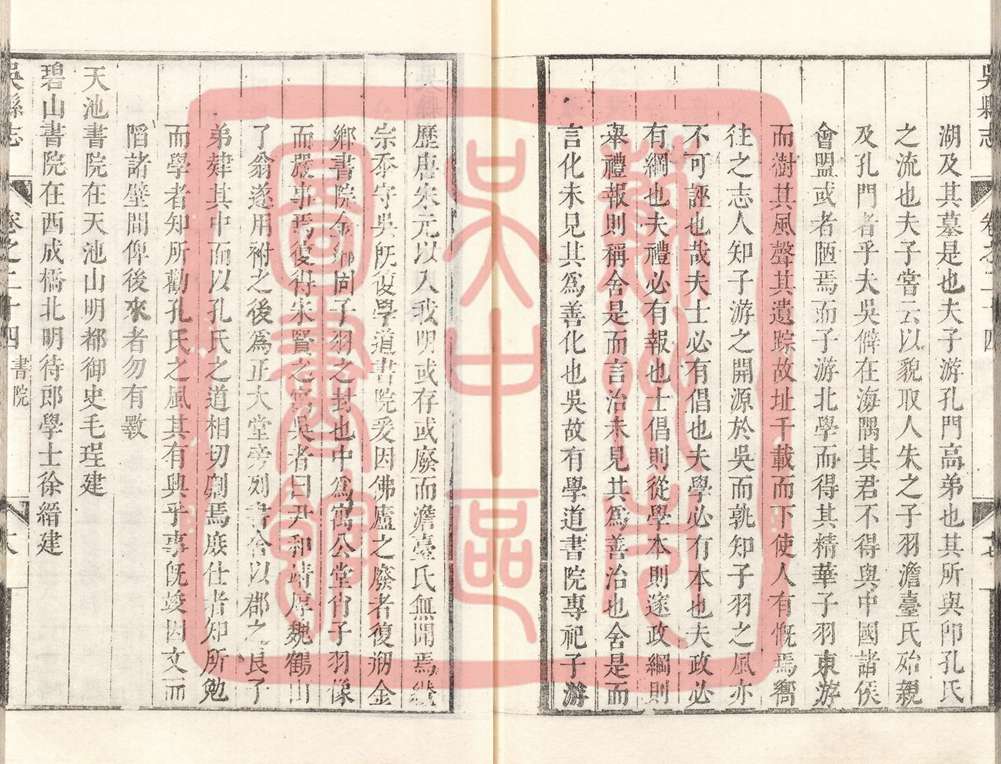 吳縣志
卷之二十四
湖及其墓是也夫子游孔門高弟也其所與卽孔氏
之流也夫子嘗云以貌取人失之子羽澹臺氏殆親
及孔門者乎夫吳僻在海隅其君不得與中國諸侯
會盟或者陋焉而子游北學而得其精華子羽東游
而澍其風聲其遺踪故址千載而下使人有慨焉嚮
往之志人知子游之開源於吳而孰知子羽之風亦
不可誣也哉夫士必有倡也夫學必有本也夫政必
有綱也夫禮必有報也士倡則從學本則邃政綱則
舉禮報則稱舍是而言治未見其爲善治也舍是而
言化未見其爲善化也吳故有學道書院專祀子游
歷唐宋元以入我明或存或廢而澹臺氏無聞焉纘
宗忝守吳旣復學道書院爰因佛廬之廢者復剏金
鄉書院金鄉固子羽之封也中爲寓公堂肖子羽像
而嚴事焉復得宋賢之寓吳者曰尹和靖焞魏鶴山
了翁遂用祔之後爲正大堂旁列書舍以郡之良子
弟肄其中而以孔氏之道相切劘焉庶仕者知所勉
而學者知所勸孔氏之風其有興乎事旣竣因文而
䧟諸壁間俾後來者勿有斁
天池書院在天池山明都御史毛珵建
碧山書院在西成橋北明待郎學士徐縉建
吳縣志
卷之二十四
書院